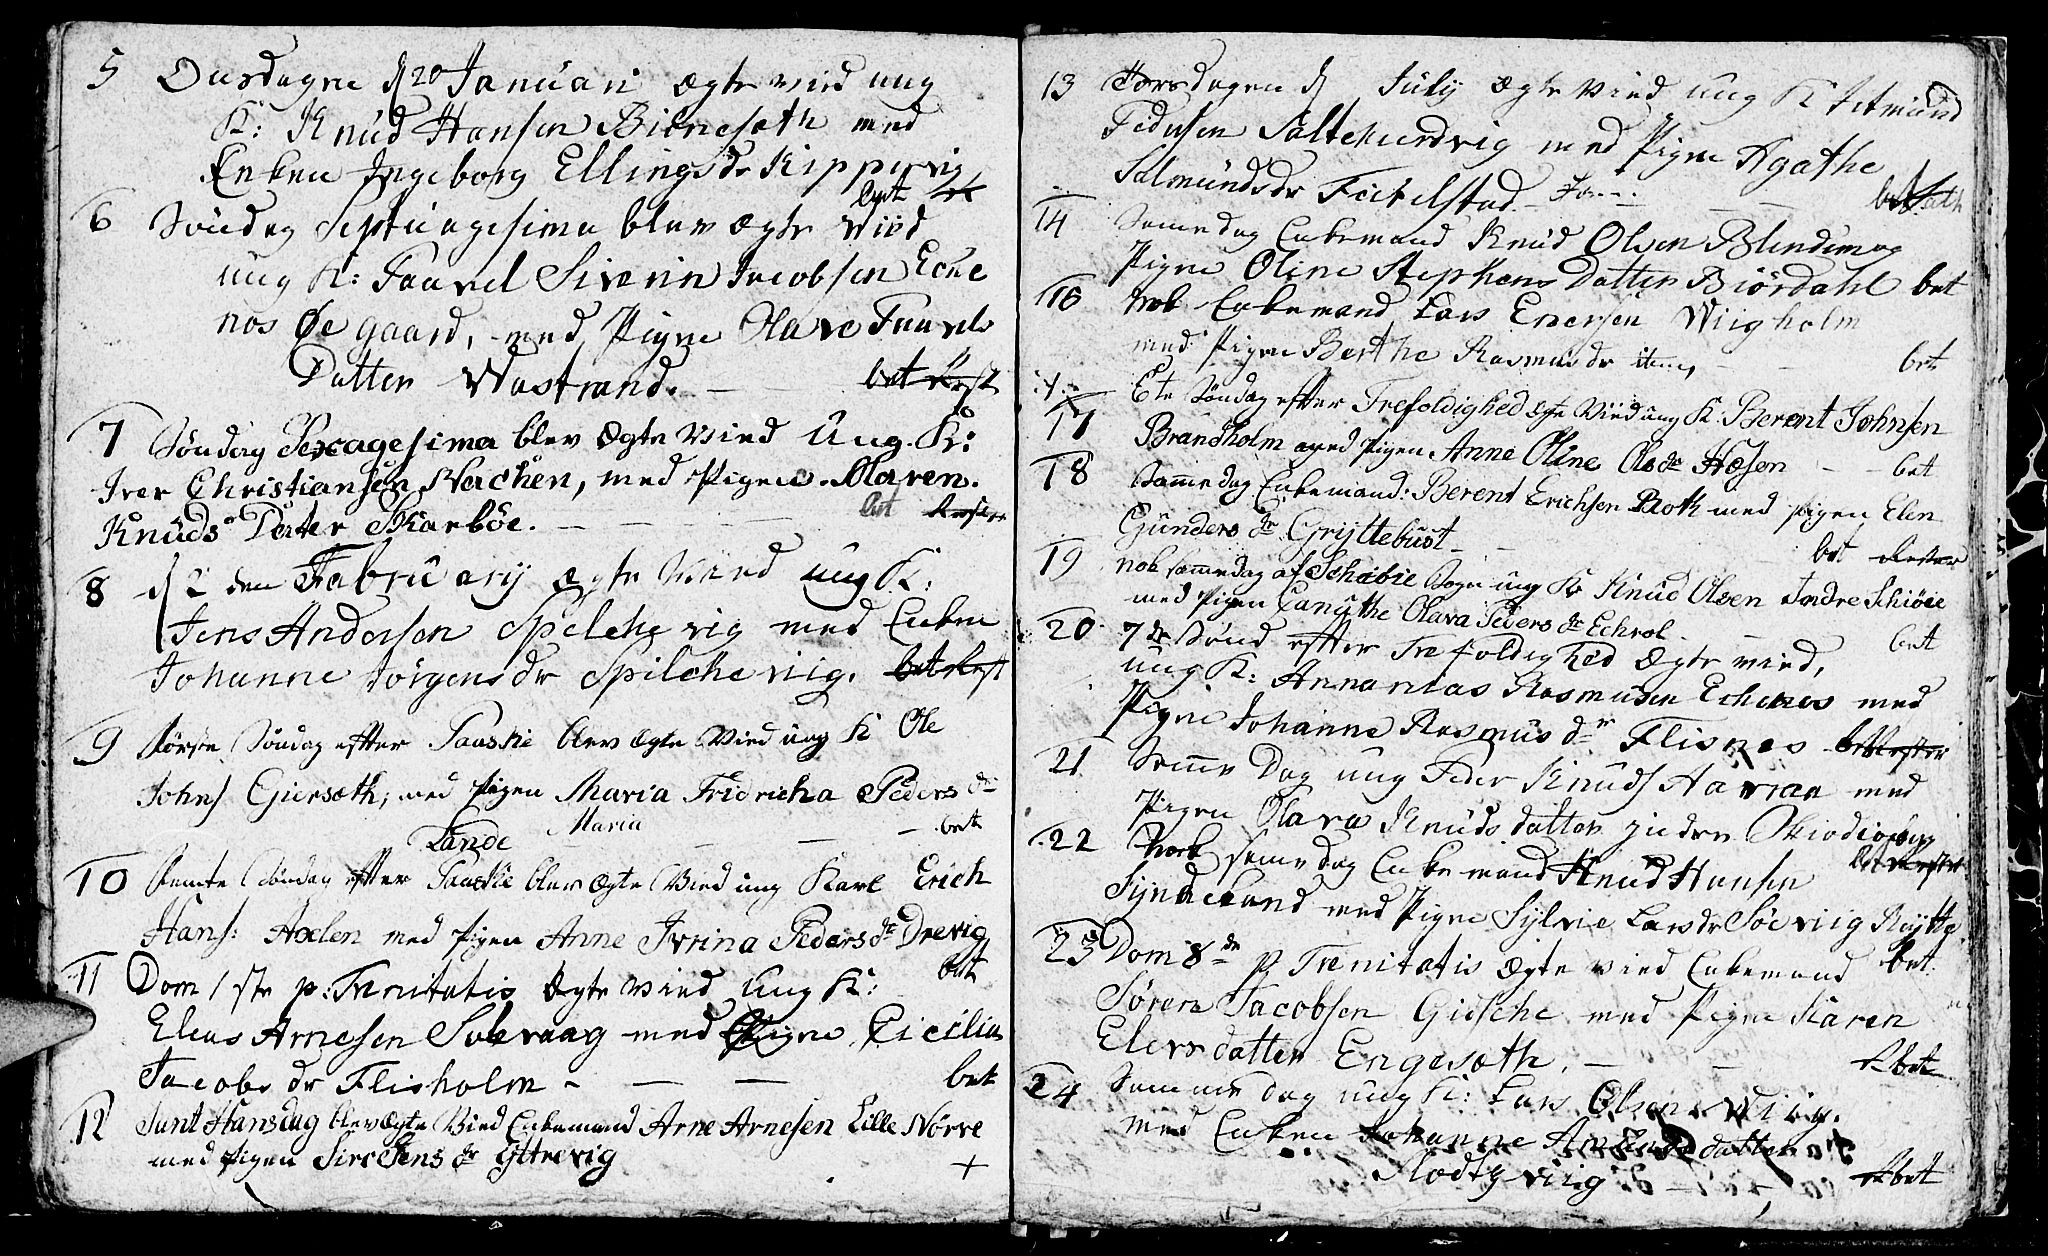 5 Onsdagen d 20 Januari ægte vied ung
K: Knud Hansen Biørnesæth med
Enken Ingeborg Ellingsdr Kippervig
bet
6 Søndag Septuagesima blev ægte vied
ung K: Taarel Sivrin Jacobsen Ecke
nos Øegaard, med Pigen Olave Taarels
Datter Wastrand. — — bet Rest
7 Søndag Sexagesima blev ægte vied Ung. K:
Iver Christiansen Nachen, med Pigen Maren.
Knuds Datter Skarbøe. — — — bet
8 d 2 den Fabruarij ægte vied ung K:
Jens Andersen Spelche vig med Enken
Johanne Jørgens dr Spilche viig. bet Rest
9 Første Søndag efter Paaske blev ægte Vied ung K Ole
Johns Giersæth, med Pigen Maria Fridricha Peders dr
Lande Maria — — — bet
10 Femte Søndag efter Paaske blev ægte Vied ung Karl Erich
Hans: Axlen med Pigen Anne Ivrina Peders dr Drevig
bet
11 Dom 1 ste p: Trenitatis ægte vied Ung K:
Elias Arnesen Sulevaag med Pigen Cicilia
Jacobs dr Flisholm - — — bet
12 Sant Hansdag blev ægte Vied Enkemand Arne Arnesen Lille Nørve
med Pigen Siri Jens dr Yttrevig +
13 Torsdagen d July ægte vied ung K
Pedersen med Pigen Agathe
Salmundsdr — — bet
14 Samme dag Enkemand Knud Olsen Blindem og
Pigen Oline Stephens Datter Biørdahl bet
16 nok Enkemand Lars Enersen Wiigholm
med Pigen Berthe Rasmus dr item, - - bet
17 6te Søndag efter Trefoldighed ægte Vied ung K. Berent Johnsen
Brandholm med Pigen Anne Oline Ols dr Hæsen - - bet
18 Samme dag Enkemand: Berent Erichsen Roth med Pigen Elen
Gunders dr Gryttebust — — bet Rester
19 nok samme dag af Schobie Sogn ung K Knud Olsen Indre Schiøee
med Pigen Canuthe Olava Peders dr Echrol. — bet
20 7de Sønd efter Trefoldighed ægte vied,
ung K: Annanias Rasmusen Echenes med
Pigen Johanne Rasmus dr Flisnes
21 Samme Dag ung Peder Knuds Havran med
Pigen Olava Knuds datter
22 Nock samme dag Enkemand Knud Hansen
Syndeland med Pigen Sylvie Lars dr Søeviig
bet
23 Dom 8de p Trenitatis ægte vied Enkemand
Søren Jacobsen Gidsche med Pigen Karen
Elers datter Engesæth. — — bet
24 Samme dag ung K: Lars Olsen Wiig.
med Enken Johanne datter
viig — — bet